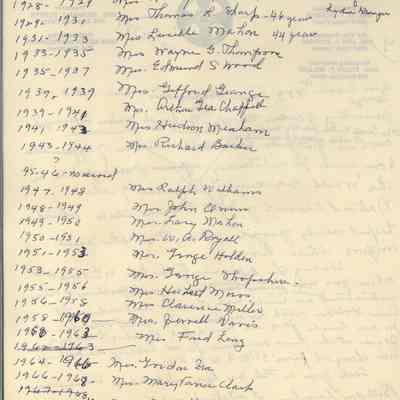 1928 - 1929 Mrs.
1929 - 1931 Mrs Thomas R Sharp - 46 years
1931 - 1933 Miss Lucille Mahon 44 years
1933 - 1935 Mrs Wayne G. Thompson
1935 - 1937 Mrs. Edmund S Wood
1939 Mrs Gifford George
1939 - 1941 Mrs. Arthur Lea Chaffell
1941 1943 Mrs Hudson Meacham
1943 - 1944 Mrs Richard Barker
?
45-46 - no record
1947 - 1948 Mrs Ralph Williams
1948 - 1949 Mrs John
1949 - 1950 Mrs. Gary Mahon
1950 - 1951 Mrs. W. A. Boyall
1951 - 1953 Mrs. George Holden
1953 - 1955 Mrs. George Shropshire.
1955 - 1956 Mrs Herbert Moss
1956 - 1958 Mrs Clarence Miller
1958 - 1960 Mrs. Jerrell Davis
1963 Mrs Fred Long
1962 - 1963
1964 - 1966 Mrs. Gordon
1966 - 1968 Mrs. Mary Vance Clark
1967 - 1968